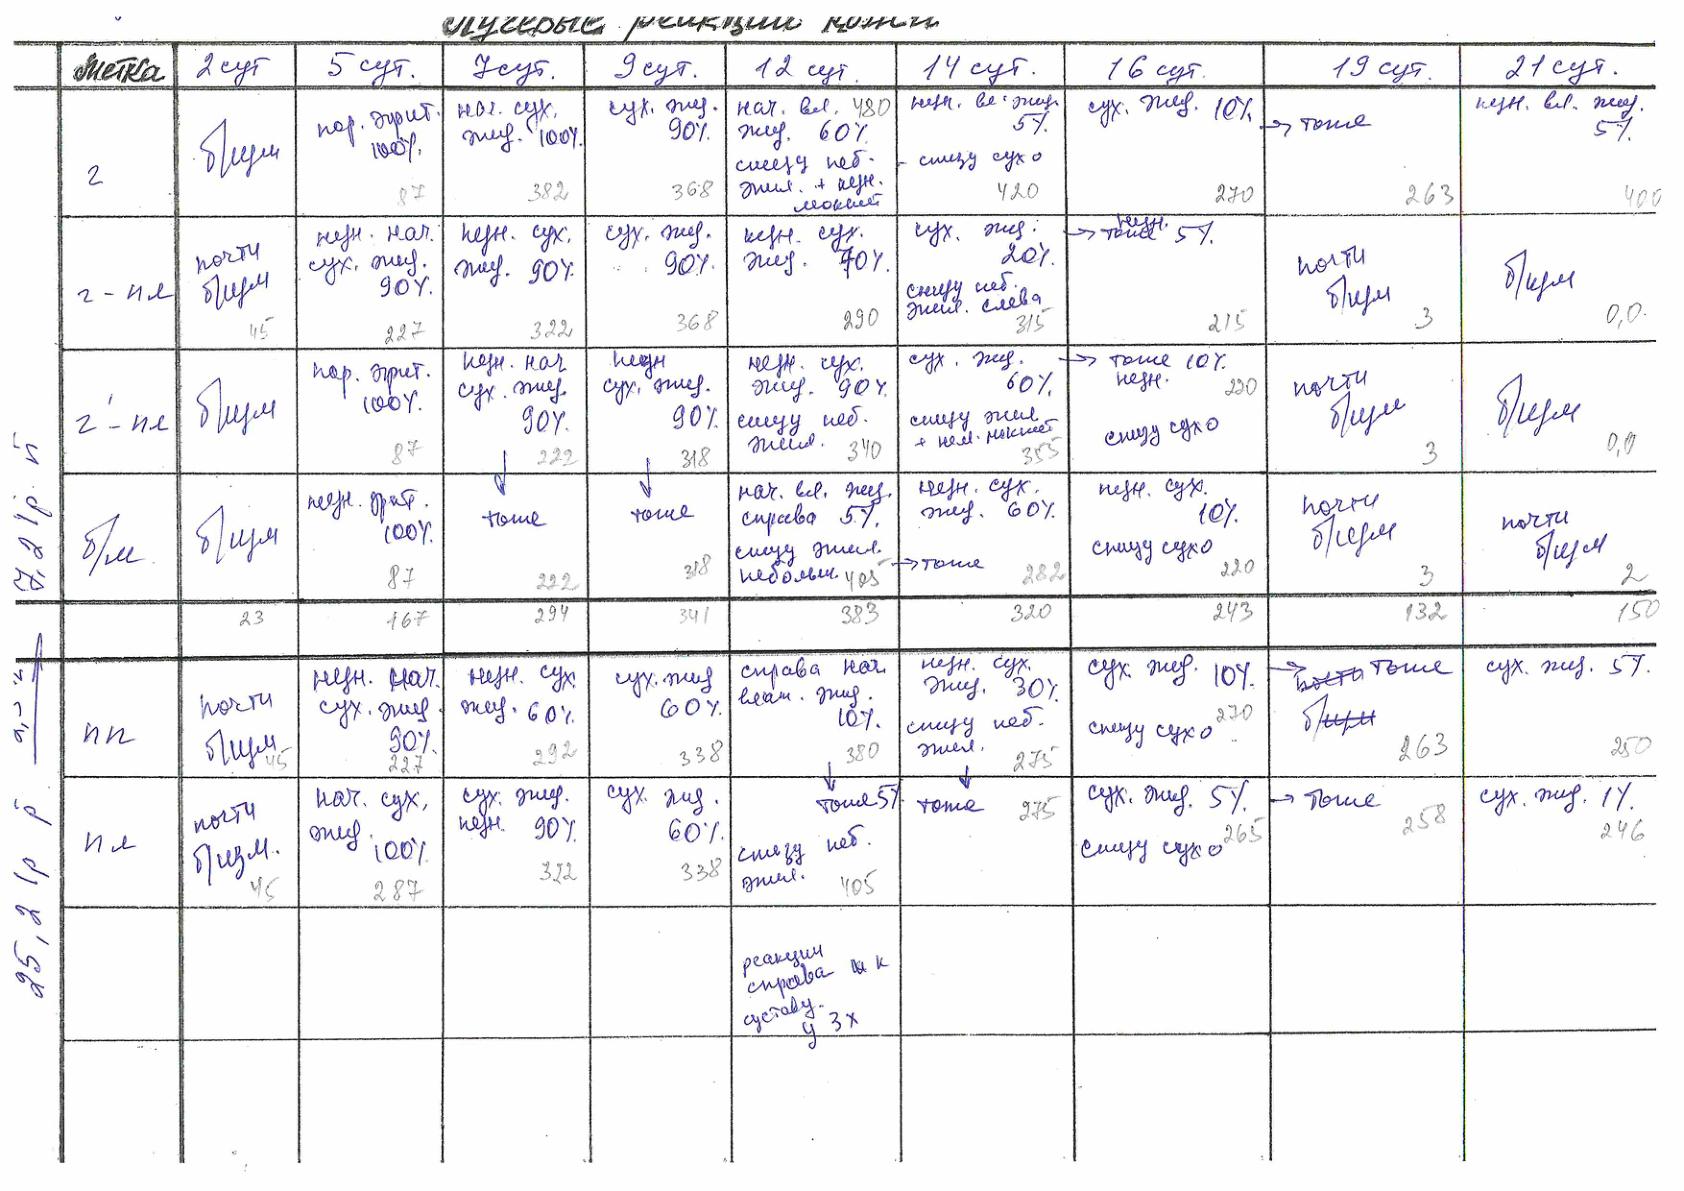 Лучевые реакции кожи
Метка 2 сут 5 сут. 7 сут. 9 сут. 12 сут. 14 сут. 16 сут. 19 сут. 21 сут.
г
б/изм
пор. эрит.
100%.
87
нач. сух.
эпид. 100%.
382
сух. эпид.
90%.
368
нач. вл. 480
эпид. 60%
снизу неб.
эпил. + незн.
мокнет
незн. вл. эпид.
5%.
- снизу сухо
420
сух. эпид. 10%.
270
→ тоже
263
незн. вл. эпид.
5%.
400
г - пл
почти
б/изм
45
незн. нач.
сух. эпид.
90%.
227
незн. сух.
эпид. 90%.
322
сух. эпид.
90%.
368
незн. сух.
эпид. 70%.
290
сух. эпид.
20%.
снизу неб.
эпил. слева
315
незн.
→ тоже 5%.
215
почти
б/изм
3
б/изм
0,0.
г' - пл
б/изм
пор. эрит.
100%.
87
незн. нач
сух. эпид.
90%.
222
незн
сух. эпид.
90%.
318
незн. сух.
эпид. 90%.
снизу неб.
эпил. 340
сух. эпид.
60%.
снизу эпил
+ нем. мокнет
355
→ тоже 10%.
незн. 220
снизу сухо
почти
б/изм
3
б/изм
0,0
б/м
б/изм
незн. эрит.
100%.
87
тоже
222
тоже
318
нач. вл. эпид.
справа 5%.
снизу эпил.
небольш. 405
незн. сух.
эпид. 60%.
→ тоже 282
незн. сух.
10%.
снизу сухо
220
почти
б/изм
3
почти
б/изм
2
23 167 294 341 383 320 243 132 150
пп
почти
б/изм
45
незн. нач.
сух. эпид.
90%.
227
незн. сух
эпид. 60%.
292
сух. эпид
60%.
338
справа нач.
влаж. эпид.
10%.
380
незн. сух.
эпид. 30%.
снизу неб.
эпил. 275
сух. эпид. 10%.
270
снизу сухо
→ почти тоже
б/изм
263
сух. эпид. 5%.
250
пл
почти
б/изм.
45
нач. сух.
эпид.
100%.
287
сух. эпид.
незн. 90%.
322
сух. эпид.
60%.
338
тоже 5%
снизу неб.
эпил. 405
тоже 275
сух. эпид. 5%.
265
снизу сухо
→ тоже
258
сух. эпид. 1%.
246
реакции
справа к
суставу.
у 3х
7,2 Гр
25,2 Гр